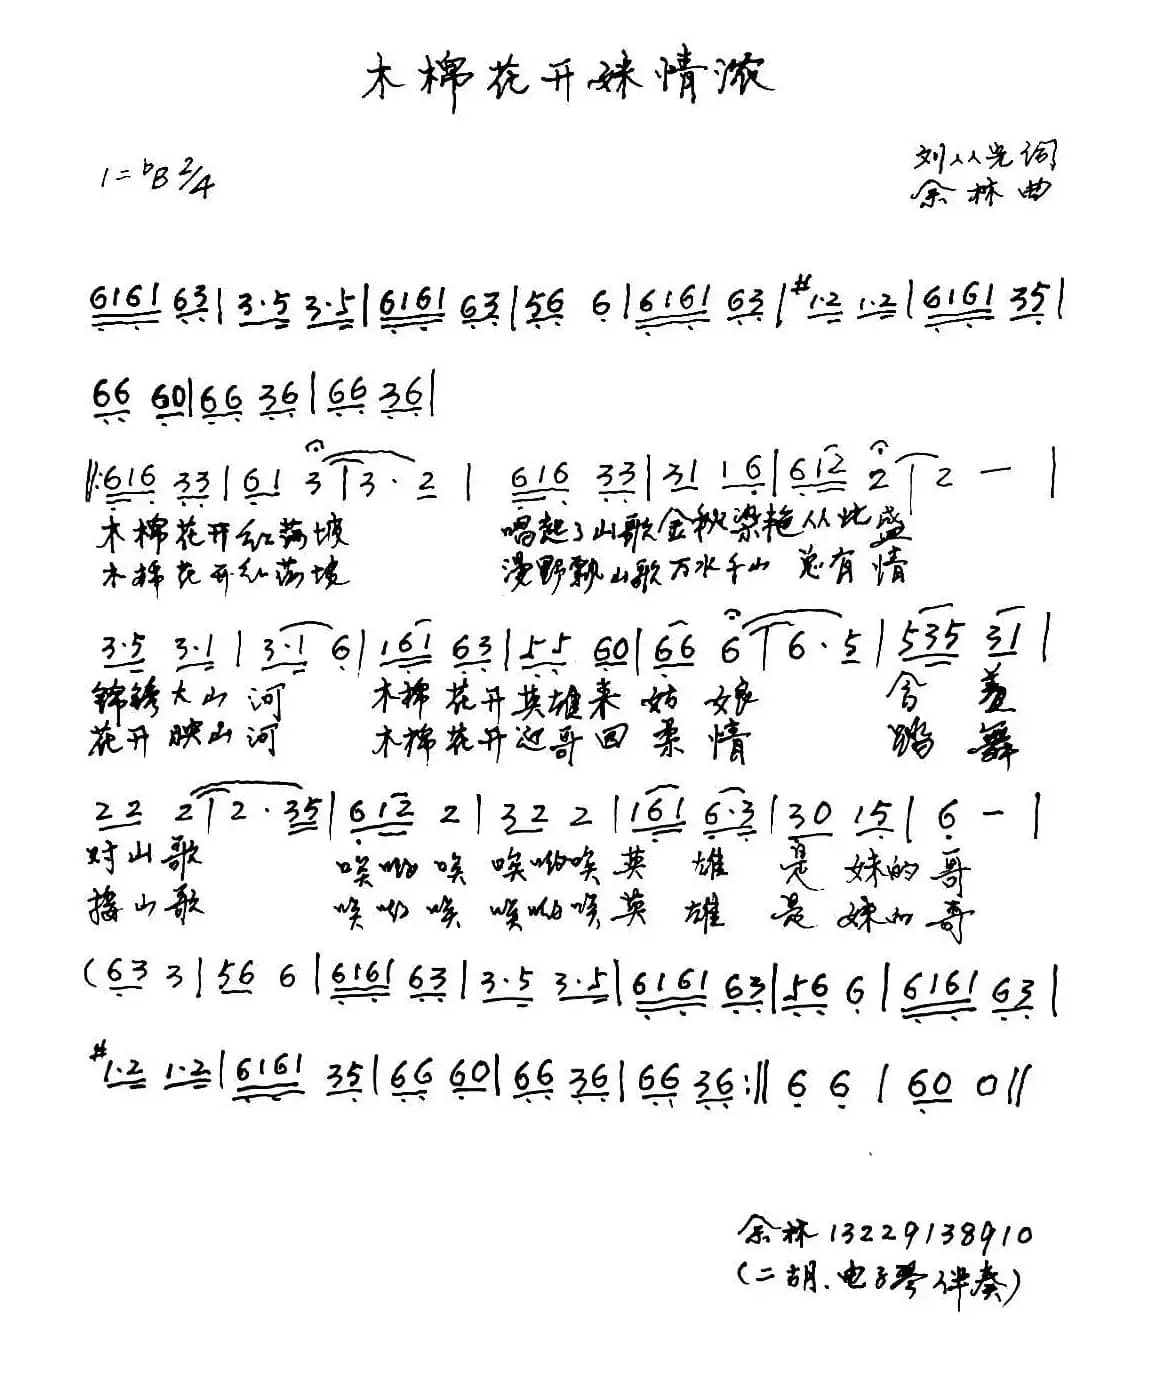 木棉花开妹情浓
1=♭B 2/4
刘从光词
余林曲
6161 63|3·5 3·5|6161 63|56 6|6161 63|#1·2 1·2|6161 35|
66 60|66 36|66 36|
‖:616 33|61 3|3·2| 616 33|31 16|612 2|2 —|
木棉花开红满坡 唱起了山歌金秋梁艳从此盛
木棉花开红满坡 漫野飘山歌万水千山总有情
3·5 3·1|3·1 6|161 63|55 60|66 6|6·5|535 31|
锦绣大山河 木棉花开英雄来姑娘 含羞
花开映山河 木棉花开迎哥回柔情 踏舞
22 2|2·35|612 2|32 2|161 6·3|30 15|6 —|
对山歌 唉哟唉 唉哟唉英雄是妹的哥
接山歌 唉哟唉 唉哟唉英雄是妹的哥
(63 3|56 6|6161 63|3·5 3·5|6161 63|56 6|6161 63|
#1·2 1·2|6161 35|66 60|66 36|66 36:‖6 6|60 0‖
余林13229138910
(二胡.电子琴伴奏)